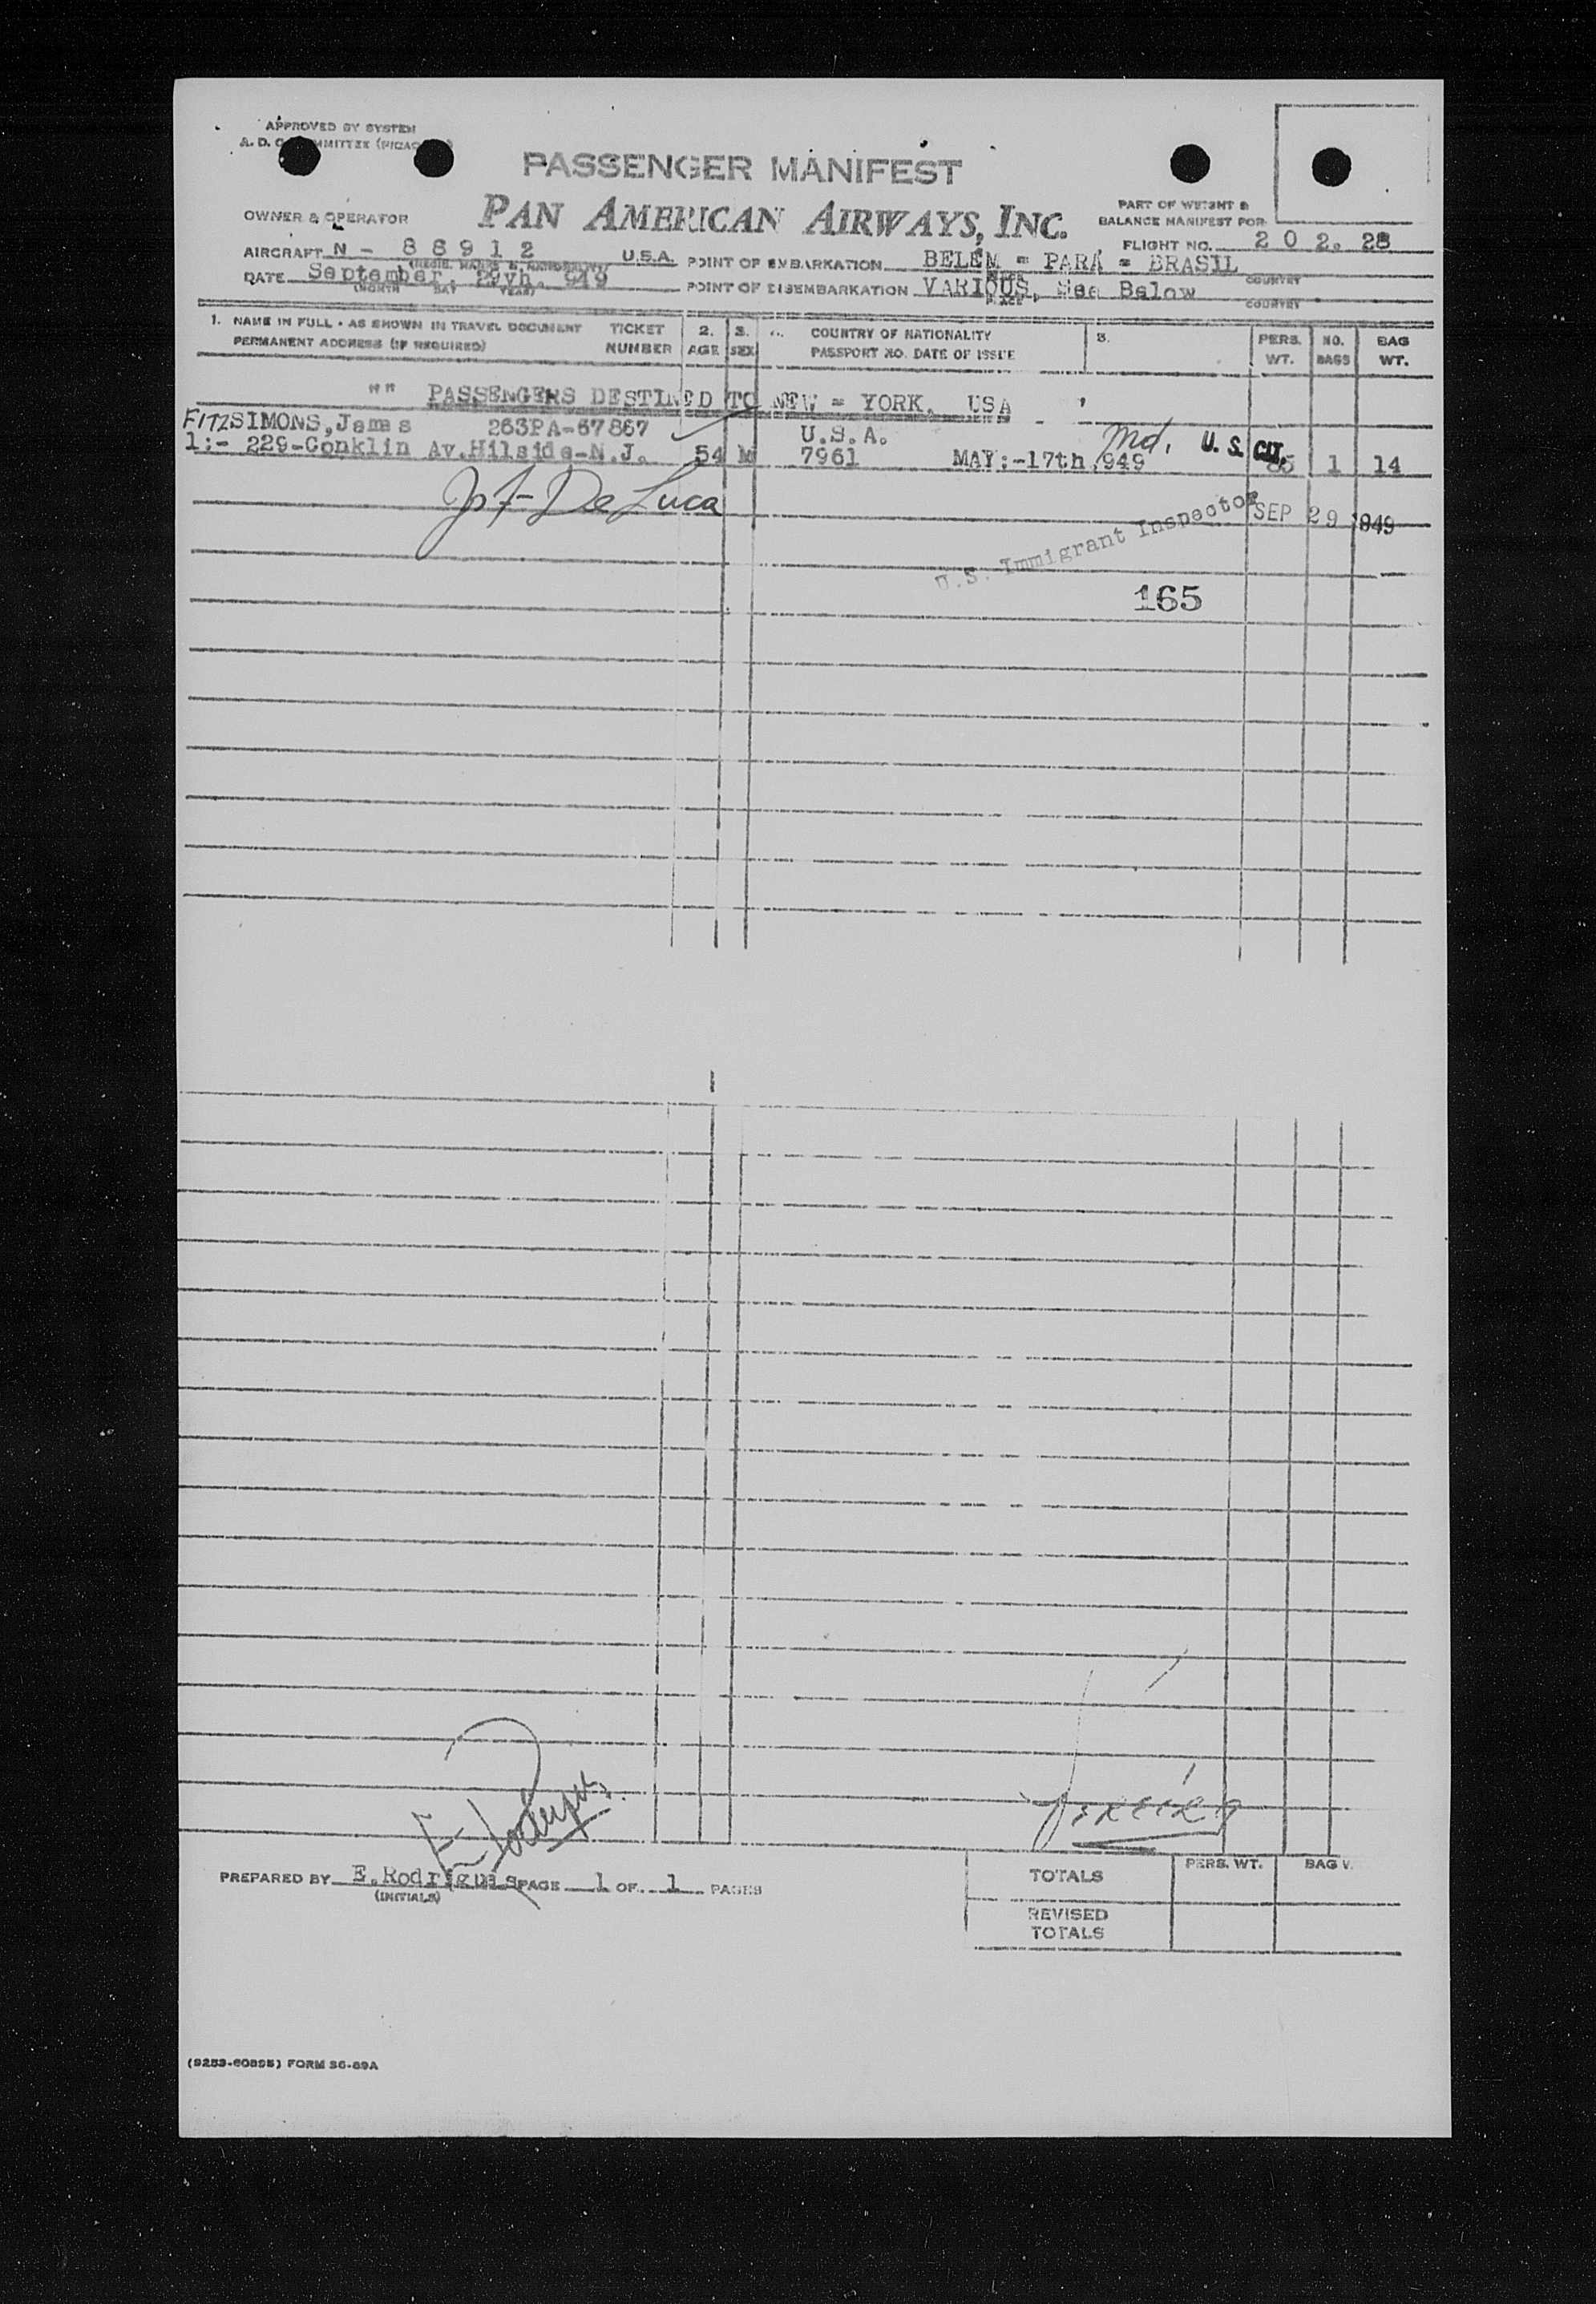 APPROVED BY SYSTEM
A. D. C. COMMITTEE
PASSENGER MANIFEST
OWNER & OPERATOR
PAN AMERICAN AIRWAYS, INC.
PART OF WEIGHT &
BALANCE MANIFEST FOR
AIRCRAFT N - 88912 U.S.A.
FLIGHT NO. 202. 28
POINT OF EMBARKATION BELEM = PARÁ = BRASIL
COUNTRY
DATE September, 29yh. 949
(MONTH DAY YEAR)
POINT OF DISEMBARKATION VARIOUS, See Below
PLACE COUNTRY
1. NAME IN FULL - AS SHOWN IN TRAVEL DOCUMENT TICKET 2. 3. COUNTRY OF NATIONALITY PERS. NO. BAG
PERMANENT ADDRESS (IF REQUIRED) NUMBER AGE SEX PASSPORT NO. DATE OF ISSUE WT. BAGS WT.
"" PASSENGERS DESTINED TO NEW = YORK, USA
FITZSIMONS, James 263PA-67867 U.S.A. Md. U. S. CIT.
1:- 229-Conklin Av.Hilside-N.J. 54 M 7961 MAY:-17th,949 85 1 14
De Luca
U.S. Immigrant Inspector SEP 29 1949
165
PREPARED BY E.Rodrigues PAGE 1 OF 1 PAGES
(INITIALS)
PERS. WT. BAG
TOTALS
REVISED
TOTALS
(9253-60895) FORM 36-89A